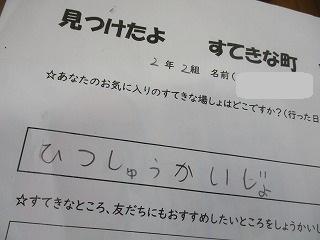 見つけたよ　すてきな町
2年2組　名前(
☆あなたのお気に入りのすてきな場しょはどこですか?(行った日
ひっしゅうかいじょ
☆すてきなところ、友だちにもおすすめしたいところをしょうかいし